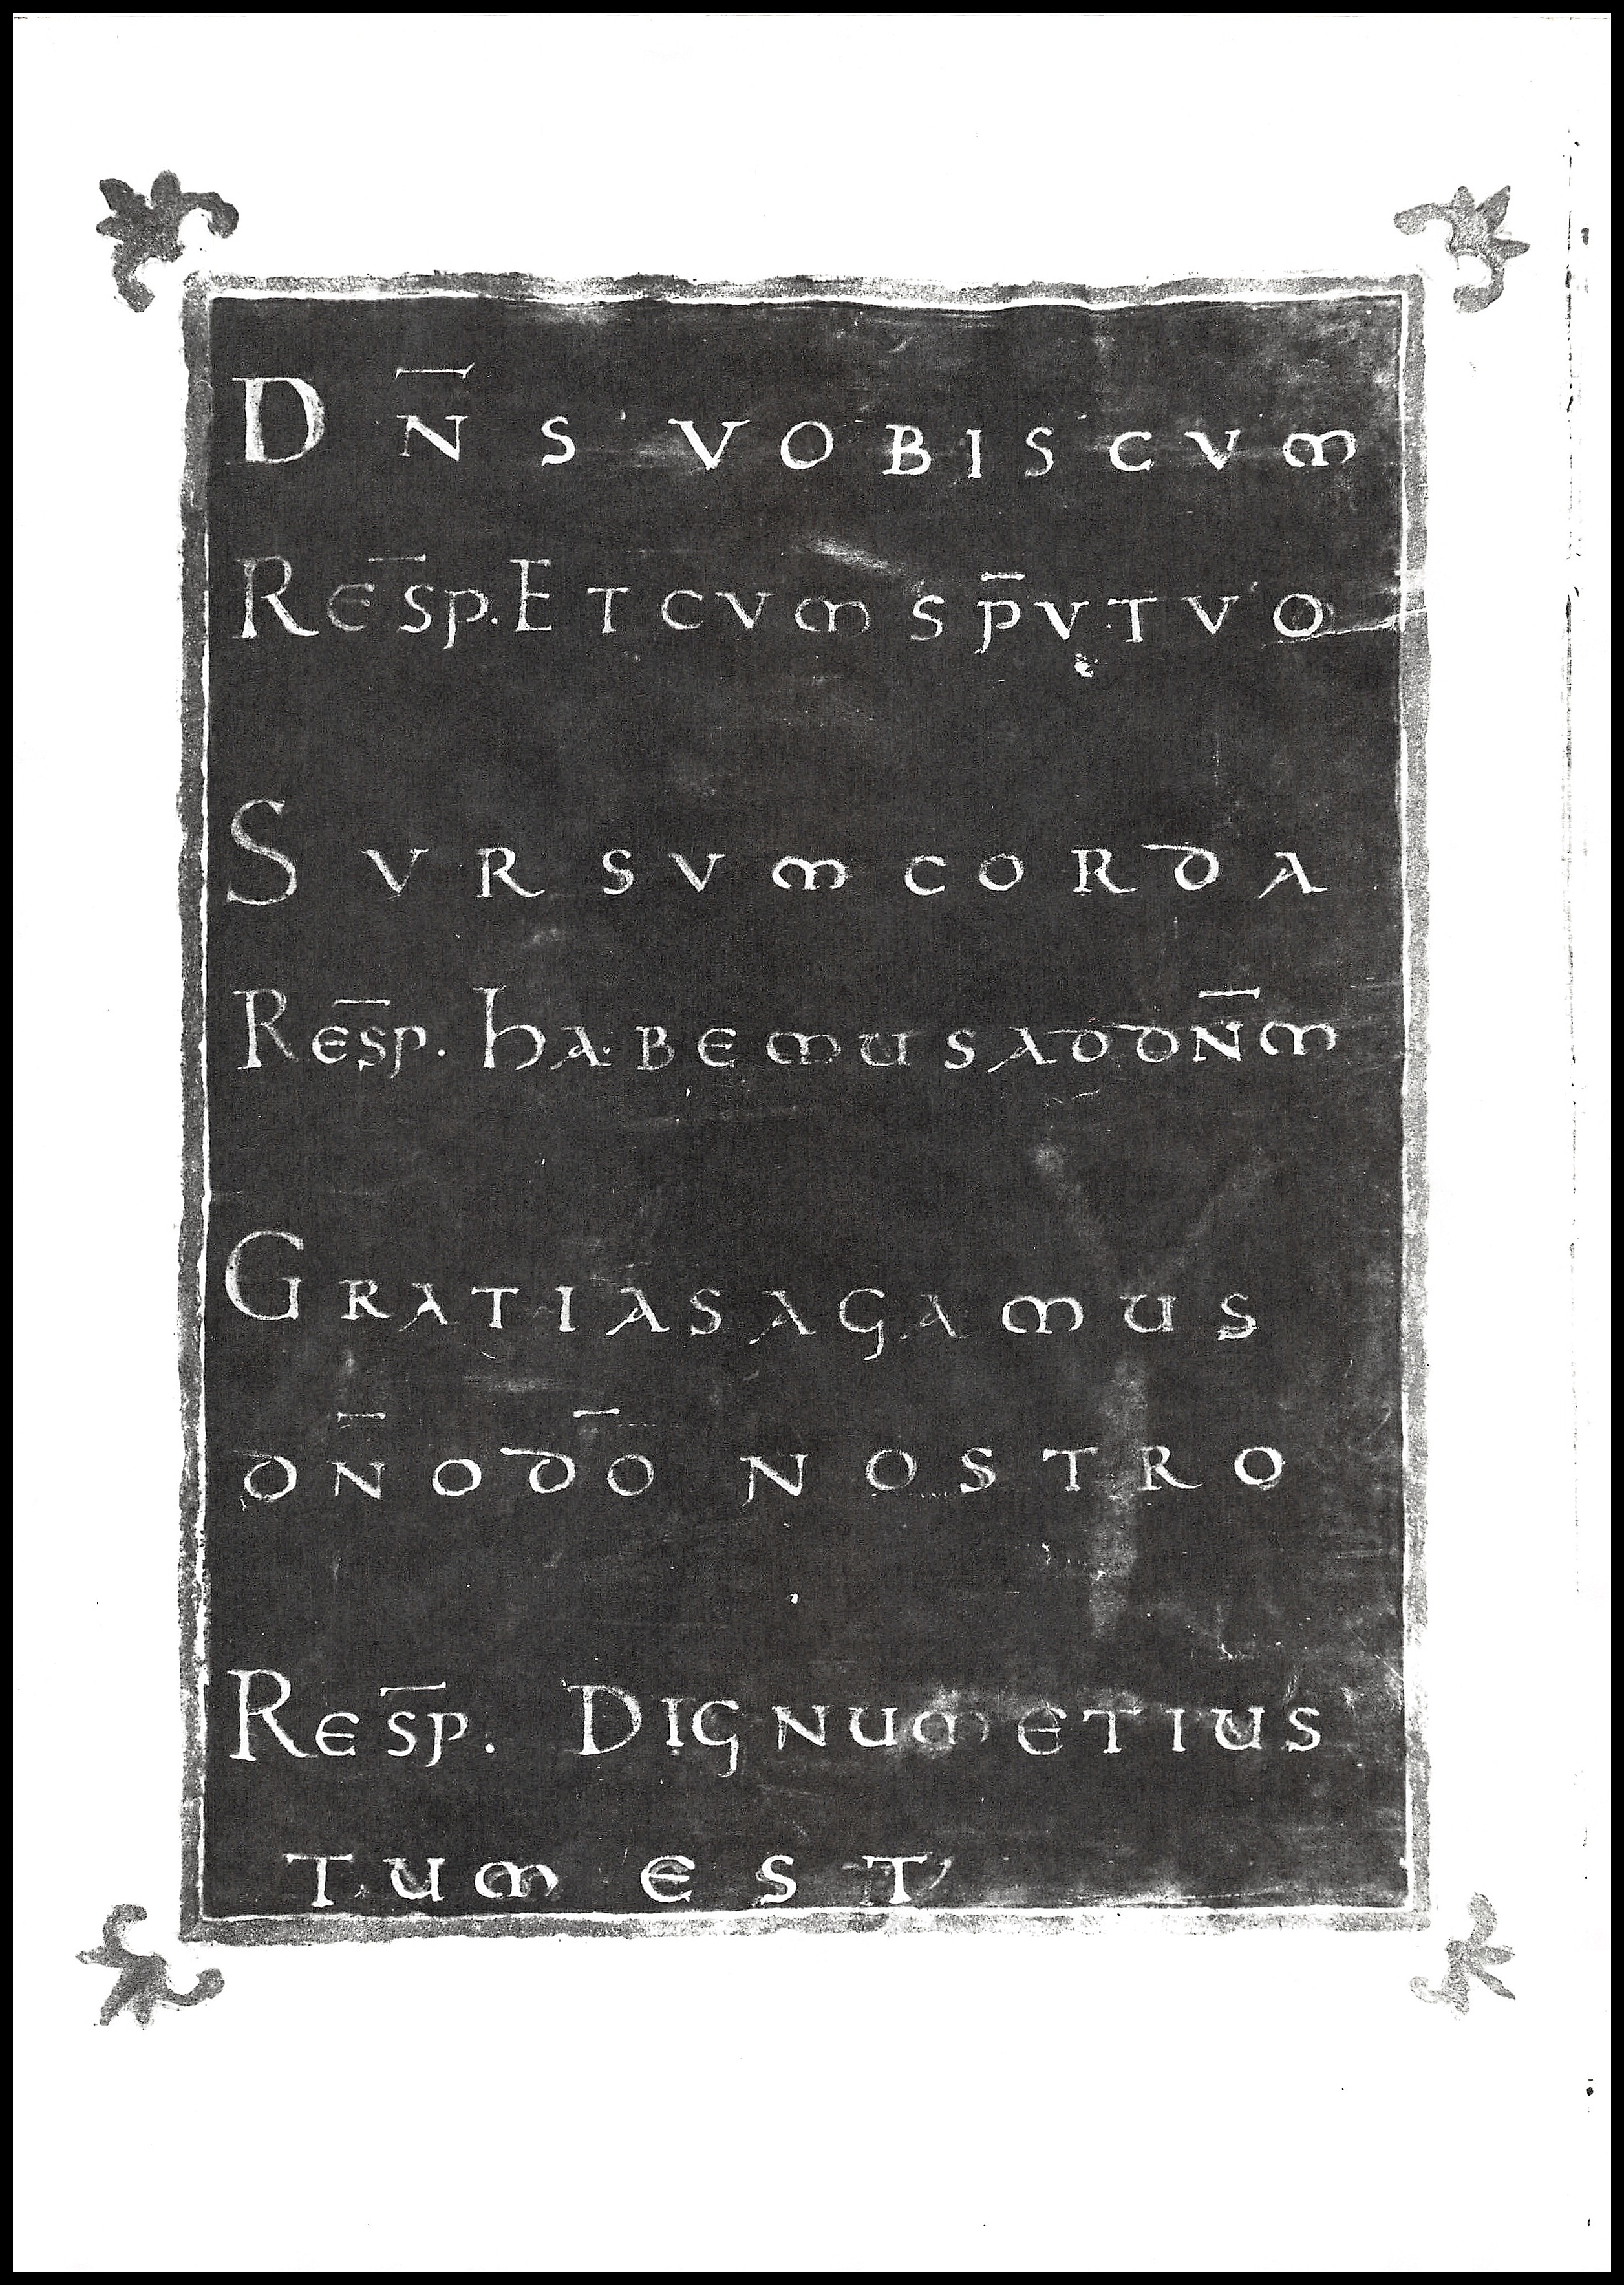 DN̄S VOBISCVM
RES̄P. ET CVM SP̄V TVO
SVRSVM CORDA
RES̄P. hABEMUS AD DN̄M
GRATIAS AGAMUS
DN̄O DŌ NOSTRO
RES̄P. DIGNUM ET IUS
TUM EST